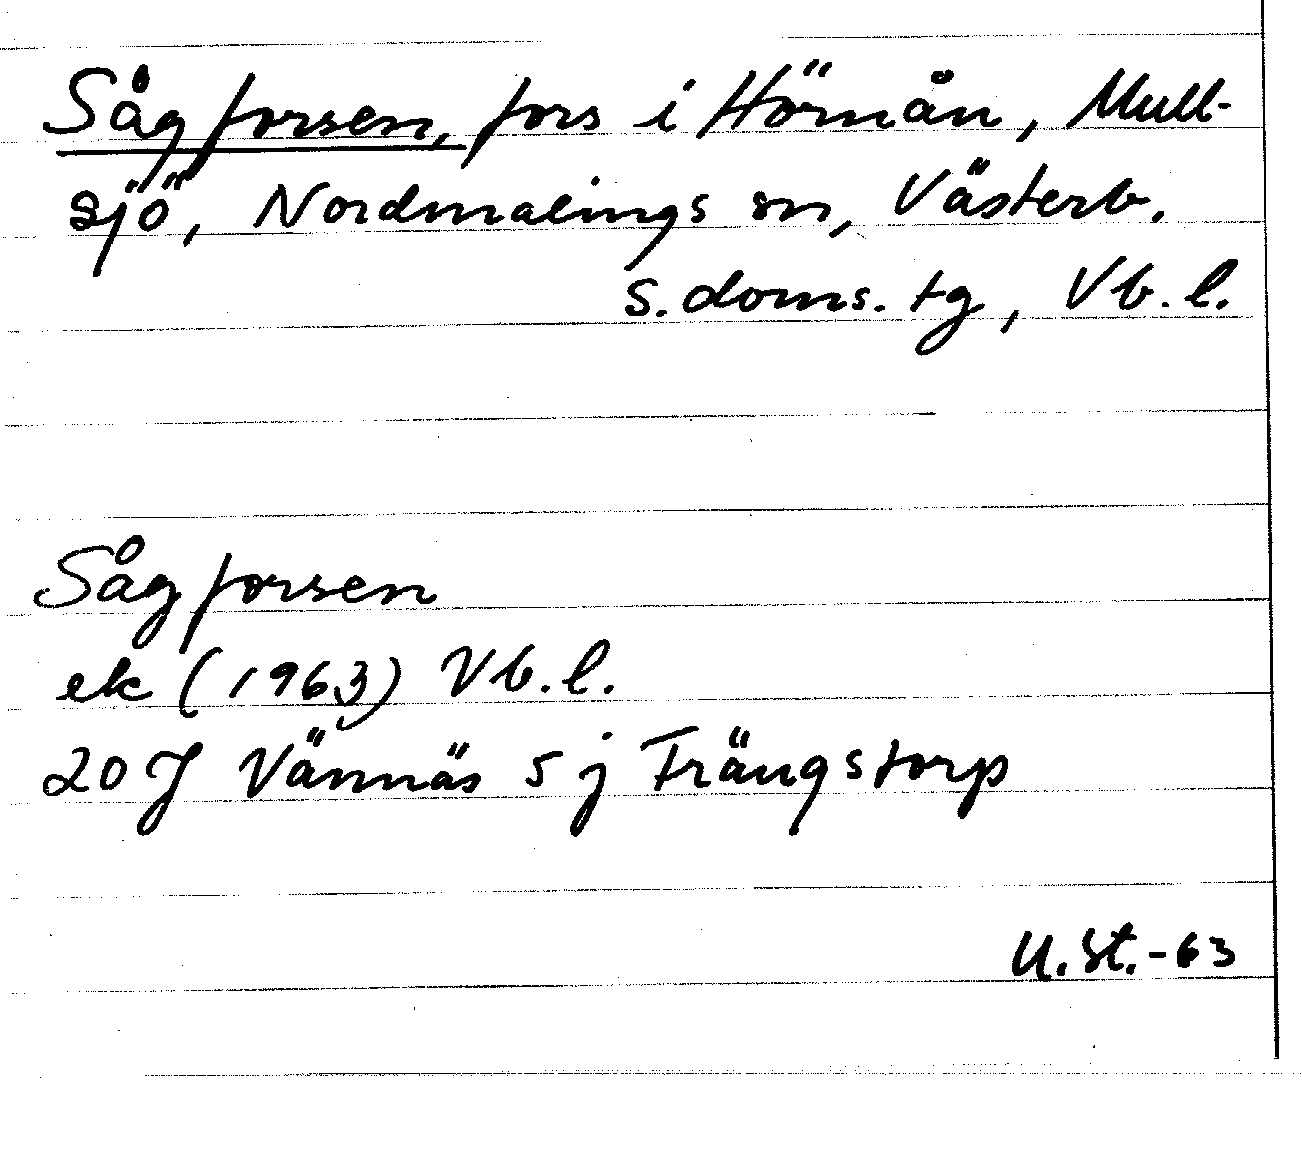 Sågforsen, fors i Hörnån, Mull-
sjö, Nordmalings sn, Västerb.
s. doms. tg, Vb. l.
Sågforsen
ek (1963) Vb. l.
20 J Vännäs 5 j Trängstorp
U. St. -63